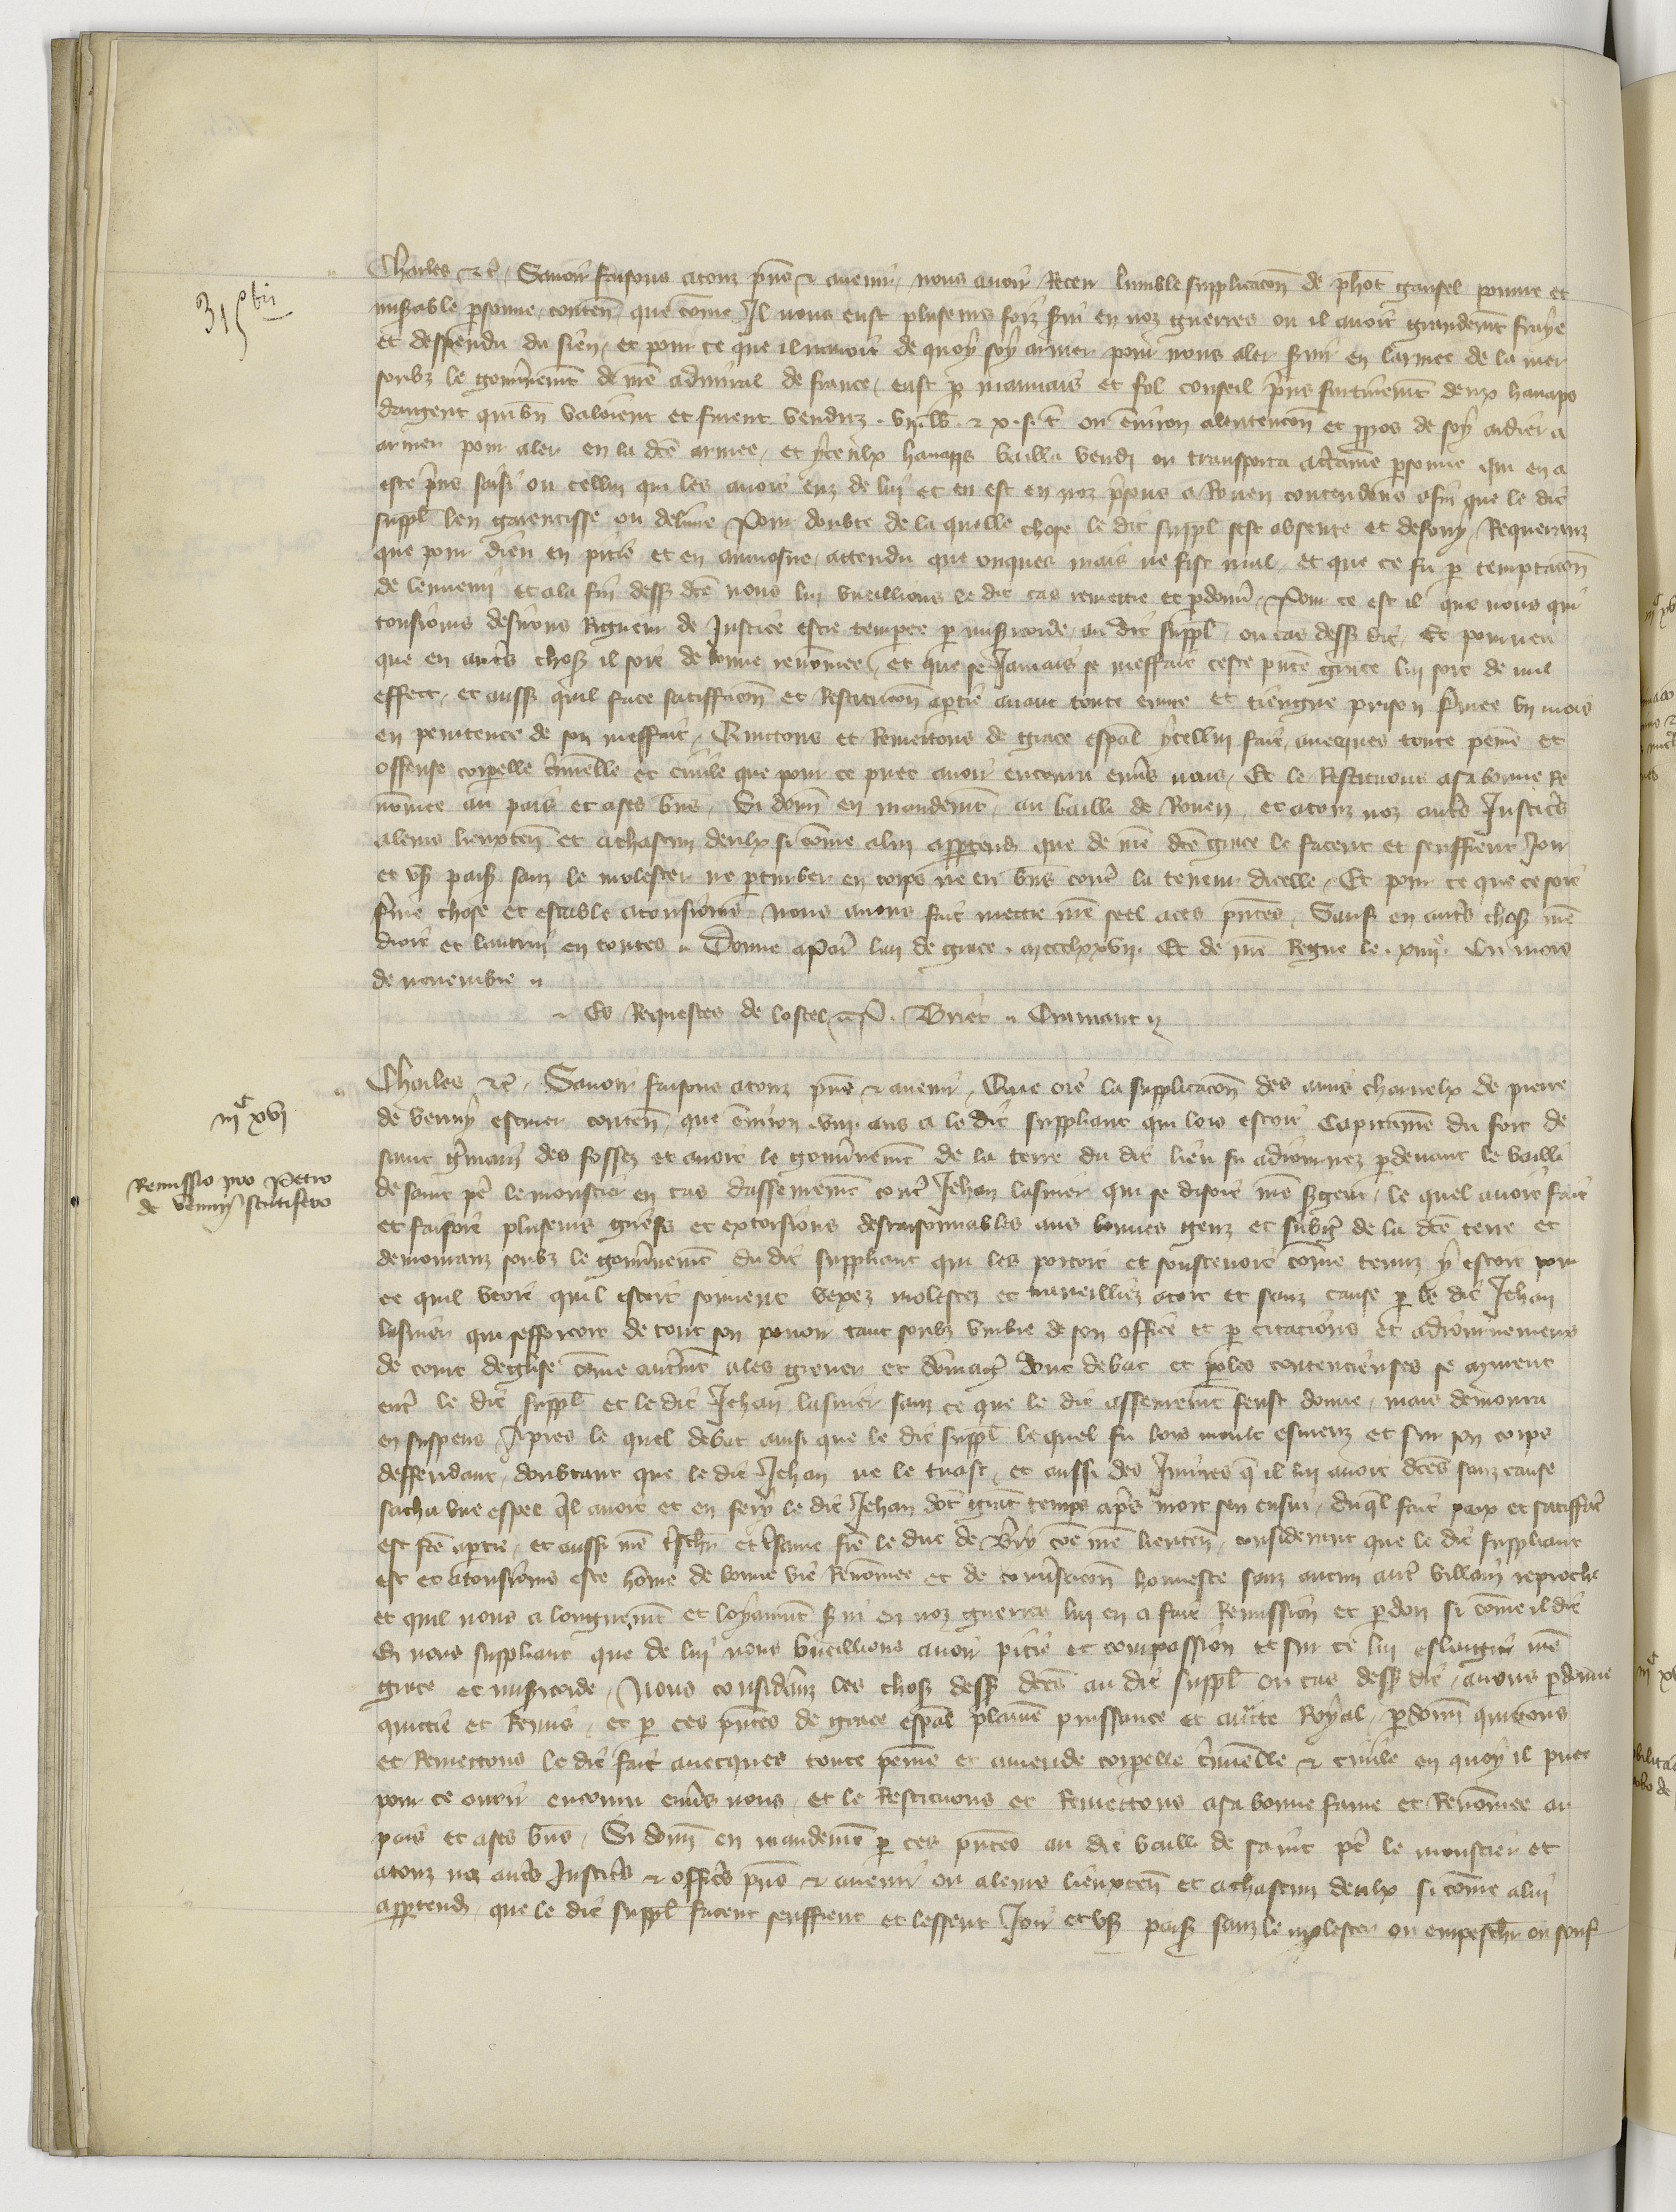 315 bis
Charles etc. Savoir faisons a touz pñs et avenir, nous avoir receu lumble supplicacõn de phot gansel povre et
miserable personne, contenñ que cõme Il nous eust pluseurs foiz servi en noz guerres ou il avoit grandemẽt fraye
et despendu du sien, et pour ce que il navoit de quoy soy armer pour nous aler servir en larmee de la mer
soubz le gouvernemẽt de nr̃e admiral de france, eust p mauvais et fol conseil prins furtivemẽt deux hanaps
dargent qui bñ valoient et furent venduz .vii. lb. et x. s. t. ou environ alentencõn et ppos de soy aidier a
armer pour aler en la dc̃e armee, et yceulx hanaps bailla vendi ou transporta a certaine personne qui en a
este prins saisi ou cellui qui les avoit euz de lui et en est en noz prisons a Rouen contendens afin que le dit
suppl̃ len garentisse ou delivre Pour doubte de la quelle chose le dit suppl̃ sest absente et desouy, Requerant
que pour dieu en pitie et en aumosne, attendu que onques mais ne fist mal et que ce fu p temptacõn
de lennemi et a la fin dess dc̃e nous lui vueillions le dit cas remettre et pdonner. Pour ce est il que nous qui
tousiours desirons Rigueur de Justice estre tempree p misericorde, au dit suppl̃ ou cas dess dit, Et pourveu
que en autrs choses il soit de bonne renõmee, et que se Jamais se meffait ceste pñte grace lui soit de nul
effect, et aussi quil face satiffacõn et Restitucõn a ptie avant toute euvre et tiengne prison fermee un mois
en penitence de son meffait, Quictons et Remettons de grace espal ycellui fait, avecques toute peine et
offense corporelle criminelle et civile que pour ce puet avoir encouru envs nous, Et le Restituons a sa bonne Re
nõmee au pais et a ses biens. Si donñ en mandemẽt au bailli de Rouen, et a touz noz autrs Justicrs
a leurs lieuxtenñ et a chascun deulx si cõme a lui apptendra que de nr̃e dc̃e grace le facent et seuffrent Jouir
et user paisiblement sanz le molester ne ptourber en corps ne en biens contr̃ la teneur dicelle. Et pour ce que ce soit
ferme chose et estable a tousiours, Nous avons fait mettre nr̃e seel a ces pñtes, Sauf en autrs choses nr̃e
droit et lautrui en toutes. Donne a Paris lan de grace. mccclxxvii. Et de nr̃e Regne le. xiiiie. Ou mois
de novembre.
Es Requestes de lostel Briet. Cramant
iiic xvi
Remissio pro Petro
de Venuy scutifero
Charles etc. Savoir faisons a touz pñs et avenir, Que oie la supplicacõn des amis charnelx de pierre
de Venuy escuier contenñ que environ .viii. ans a le dit suppliant qui lors estoit Capitaine du fort de
saint germain des fossez et avoit le gouvernemẽt de la terre du dit lieu fu adiournez pdevant le bailli
de saint pe le moustier en cas dasseurement contr̃ Jehan lasnier qui se disoit nr̃e sergent, le quel avoit fait
et faisoit pluseurs griefs et extorsions desraisonnables aus bonnes genz et subgez de la dc̃e terre et
demouranz soubz le gouvernemẽt du dit suppliant qui les portoit et soustenoit cõme tenuz y estoit pour
ce quil veoit quil estoit souvent vexez molestez et traveilliez a tort et sanz cause p le dit Jehan
lasnier qui sefforcoit de tout son povoir tant soubz umbre de son office et p citacions et adiournemens
de court deglise cõme autremẽt a les grever et dommager dont debat et poles contencieuses se murent
entr̃ le dit suppl̃ et le dit Jehan lasnier sanz ce que le dit asseuremẽt feust donne, mais demoura
en suspens, Apres le quel debat ainsi que le dit suppl̃ lequel fu lors moult esmeuz et sur son corps
deffendant, doubtant que le dit Jehan ne le tuast, et aussi des Iniures q̃ il lui avoit dc̃es sanz cause
sacha une espee ql̃ avoit et en fery le dit Jehan dõt grãt temps apr̃s mort sen ensui, duql̃ fait paix et satiffacõn
est fc̃e a ptie, et aussi nr̃e trescher et tresame frere le duc de Berry cõe nr̃e lieutenñ, considerant que le dit suppliant
est et a tousiours este hõme de bonne vie Renõmee et de conversacõn honneste sanz aucun autr̃ villain reproche
et quil nous a longuemẽt et loyaumẽt servi en noz guerres lui en a fait Remission et pdon si cõme il dit
En nous suppliant que de lui nous vueillions avoir pitie et compassion et sur ce lui eslargir nr̃e
grace et misericorde, Nous considerans les choses dess dc̃es au dit suppl̃ ou cas dess dit, avons pdonne
quittie et Remis, et p ces pñtes de grace espal plaine puissance et auctorite Royal, pdonnons quittons
et Remettons le dit fait avecques toute peine et amende corporelle criminelle et civile en quoy il puet
pour ce avoir encouru envs nous, et le Restituons et Remettons a sa bonne fame et Renõmee au
pais et a ses biens, Si donñ en mandement p ces pñtes au dit bailli de saint pe le moustier et
a touz noz autrs Justicrs et officrs pñs et avenir ou a leurs lieuxtenñ et a chascun deulx si cõme a lui
apptendra, que le dit suppl̃ facent seuffrent et lessent Jouir et user paisiblement sanz le molester ou empescher ou souf